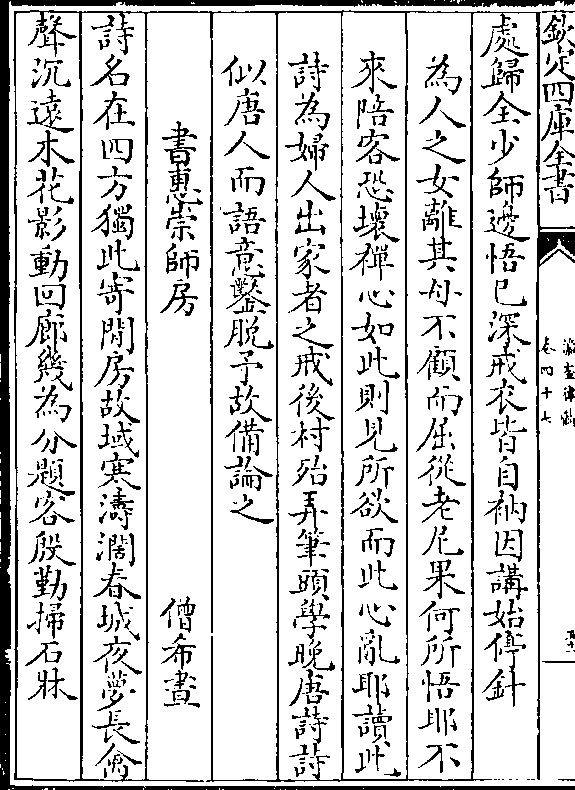 欽定四庫全書
瀛奎律髓
卷四十七
處歸全少師邊悟已深戒衣皆自衲因講始停針
為人之女離其母不顧而屈從老尼果何所悟耶不
來陪客恐壞禪心如此則見所欲而此心亂耶讀此
詩為婦人出家者之戒後村殆弄筆頭學晚唐詩詩
似唐人而語意鑿脱予故備論之
書惠崇師房
僧希晝
詩名在四方獨此寄閒房故域寒濤濶春城夜夢長禽
聲沉遠木花影動回廊幾為分題客殷勤掃石牀